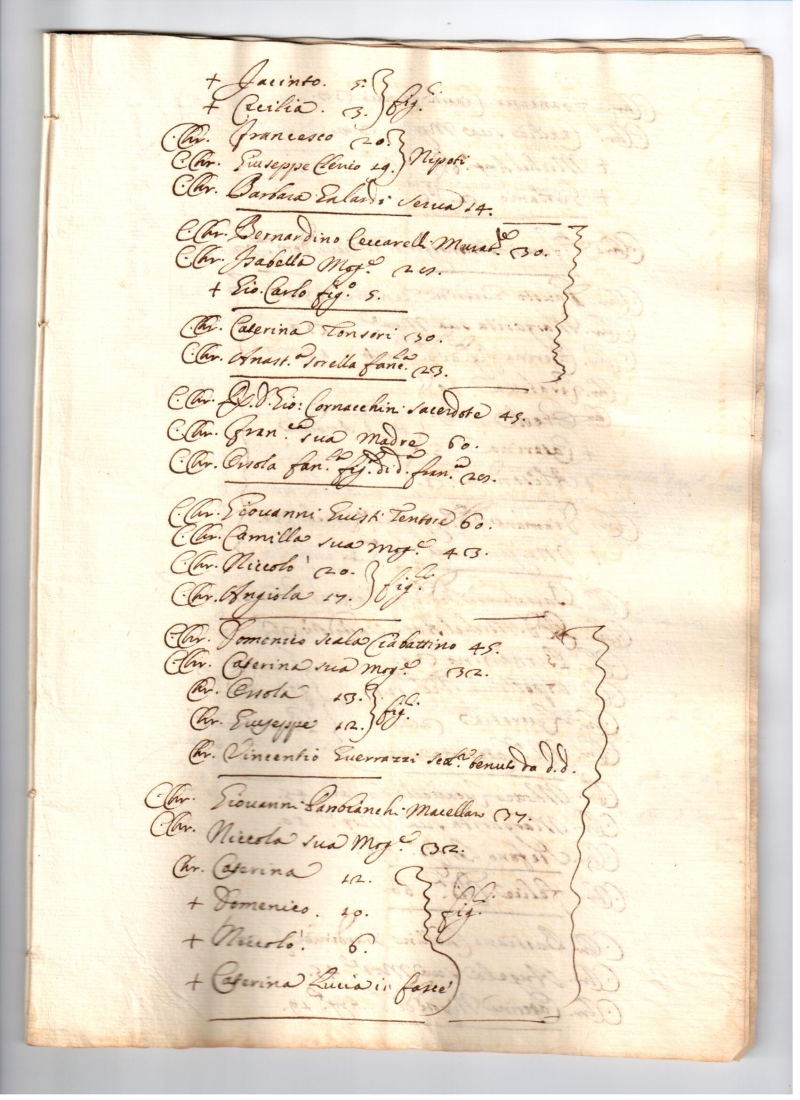 + Jacinto. 5.
+ Cecilia. 3. } fig.li
C. Chr. Francesco 20.
C. Chr. Giuseppe Clevio 19. } Nipoti
C. Chr. Barbara serva 14.
C. Chr. Bernardino Ceccarelli Murat.re 30.
C. Chr. Isabella Mog.e
+ Gio. Carlo fig.o 5.
C. Chr. Caterina Tonsori 30.
C. Chr. Anast.a sorella fanc.la 23.
C. Chr. Gio: Cornacchini sacerdote 45.
C. Chr. Fran.ca sua Madre 60.
C. Chr. Orsola fan.la fig.la di d.a fran.ca
C. Chr. Giovanni Tentore 60.
C. Chr. Camilla sua mog.e 43.
C. Chr. Niccolò 20.
C. Chr. Angiola 17. } fig.li
C. Chr. Domenico scala Ciabattino 45.
C. Chr. Caterina sua mog.e 32.
Chr. Orsola 13.
Chr. Giuseppe 12. } fig.li
Chr. Vincentio Guerrazzi
C. Chr. Giovanni Panbianchi Macellaro 37.
C. Chr. Niccola sua Mog.e 32.
Chr. Caterina 12.
+ Domenico. 10. fig.li
+ Niccolò. 6.
+ Caterina Lucia in fasce